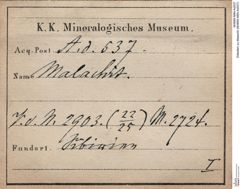 K. K. Mineralogisches Museum.
Acq.-Post A. d. 637.
Name Malachit.
V. d. N. 2903. (22/25) M. 2724.
Fundort. Sibirien
I